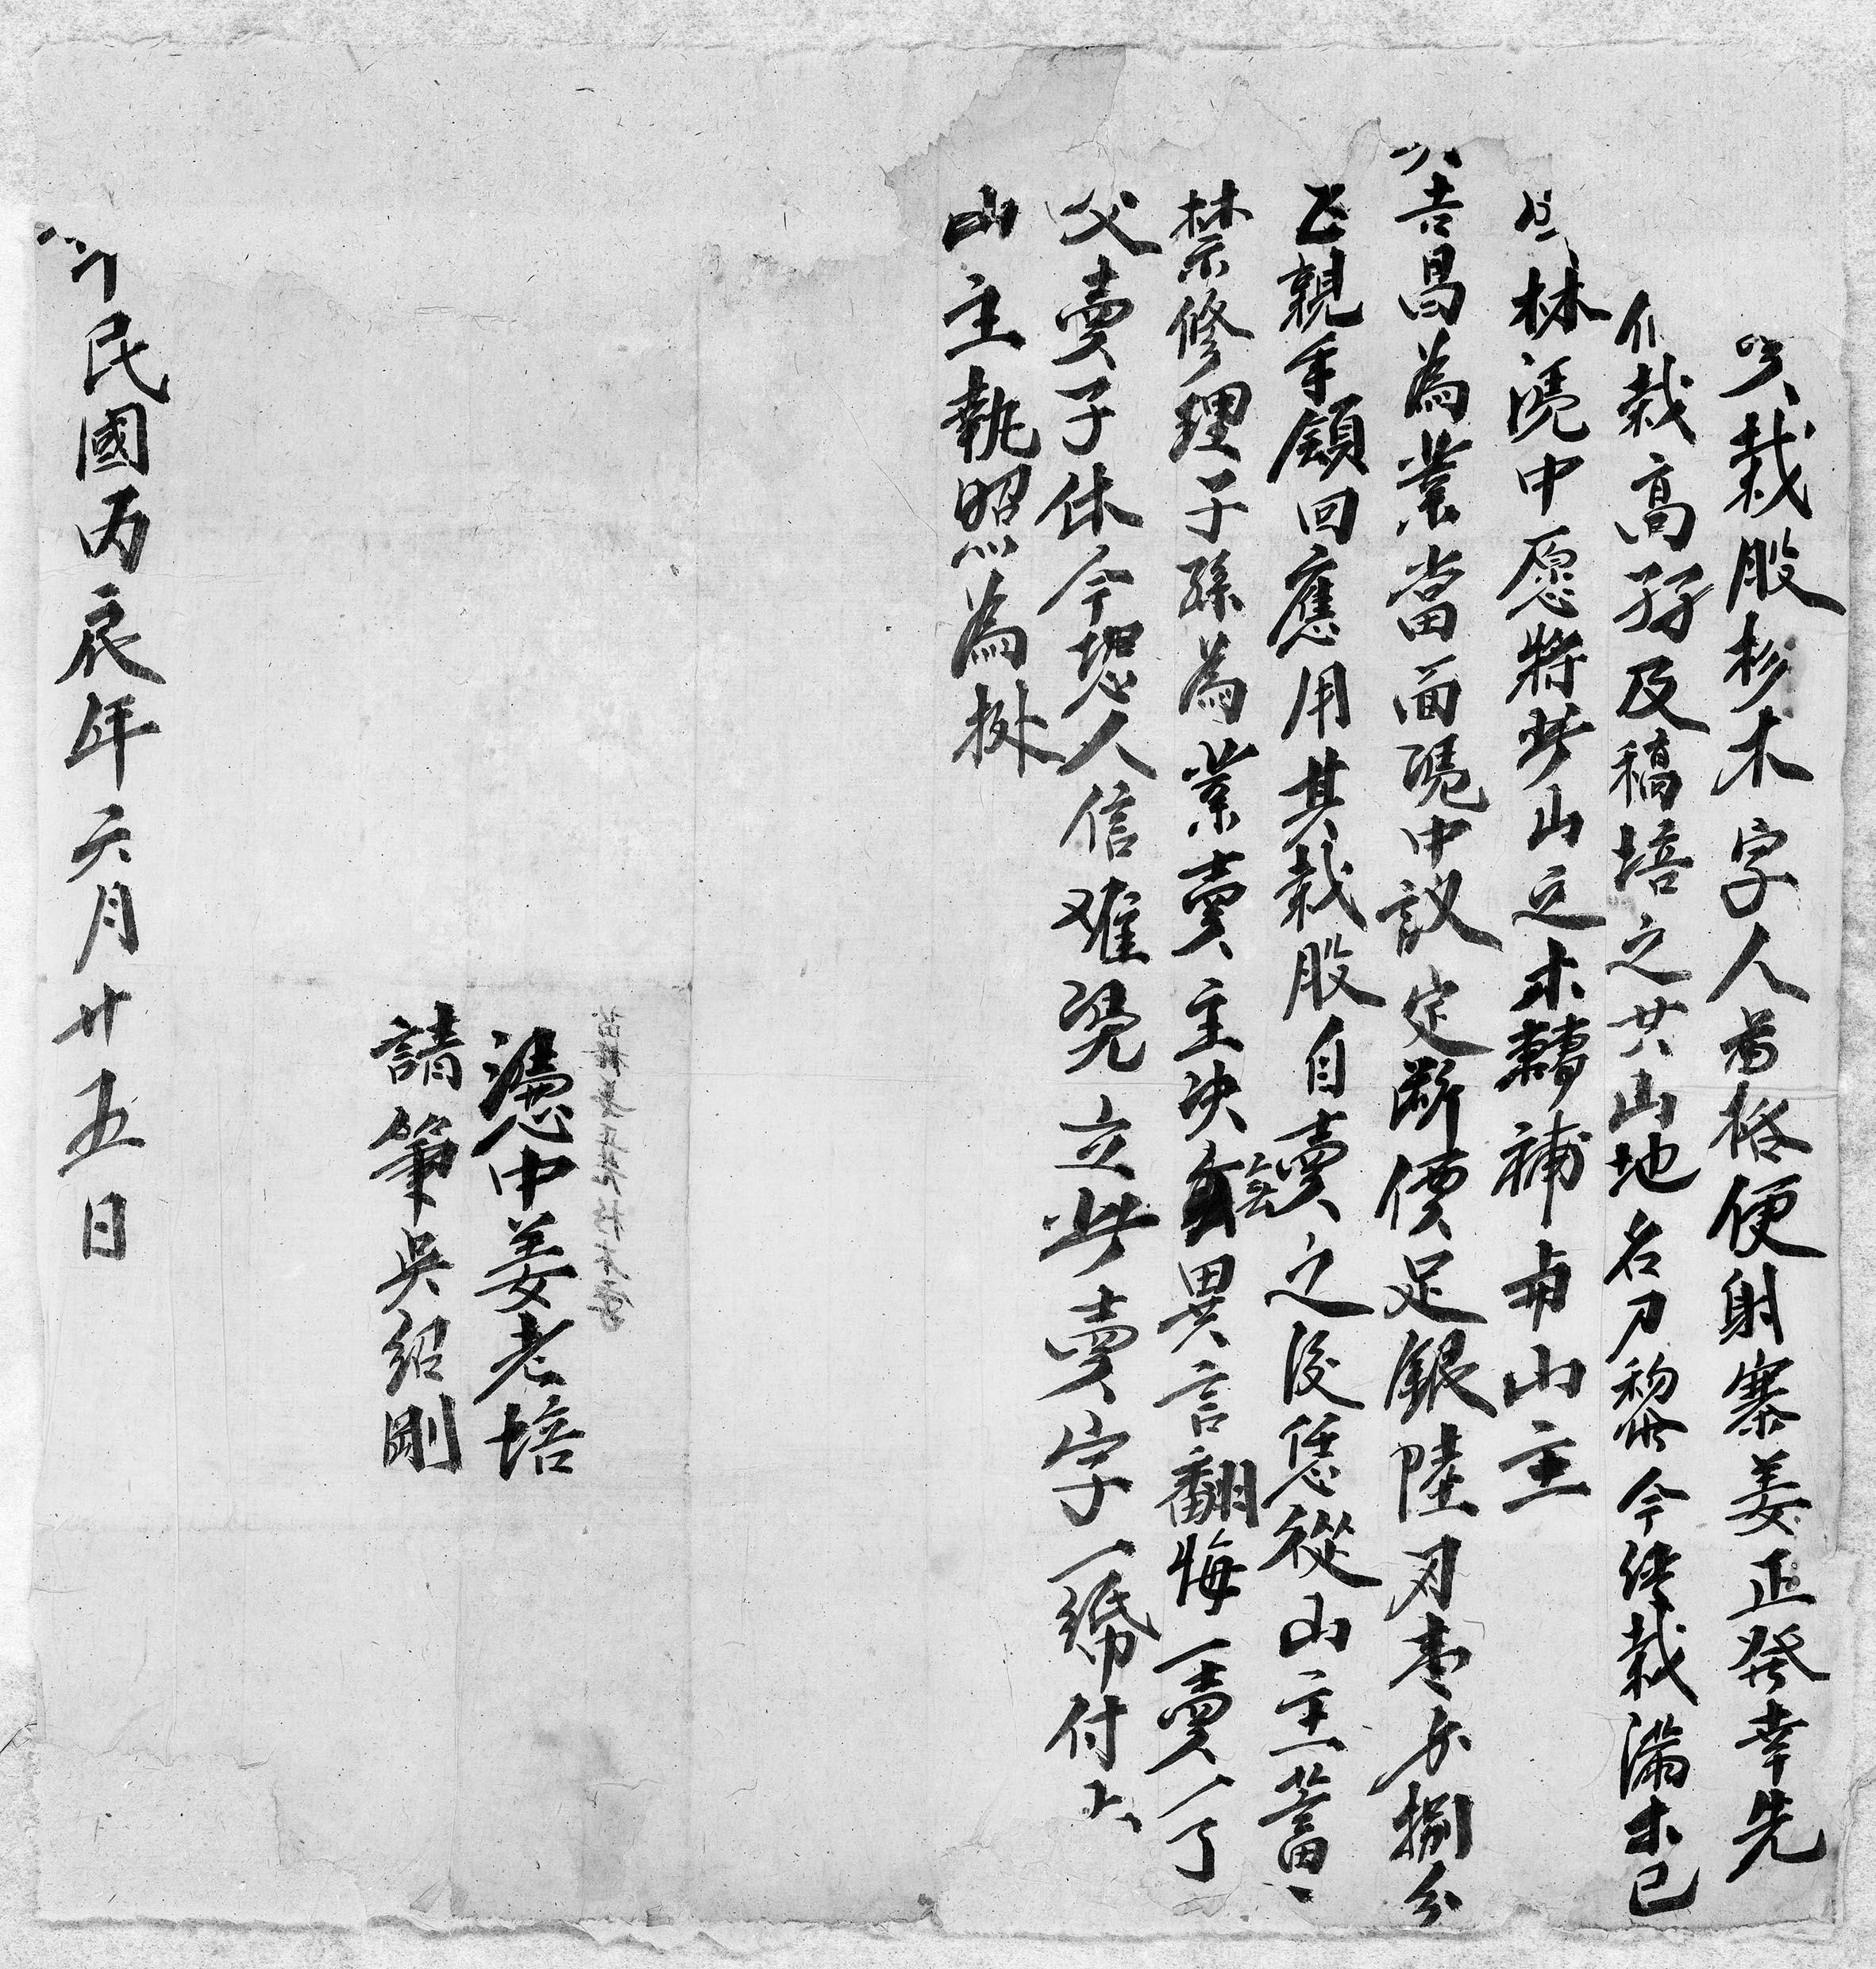 栽股杉木字人畨格便射寨姜正癸幸先
栽高孖及稿培之共山地名刀䅲今經栽滿木已
林凴中愿將此山之木轉補与山主
吉昌為業當面凴中議定斷價足銀陸刄壱分捌分
正親手領回應用其栽股自賣之後恁從山主蓄
禁修理子孫為業賣主决無異言翻悔一賣一了
父賣子休今恐人信难凴立此賣字一紙付与
山主執照為挶
憑中姜老培
請筆吳紹剛
民國丙辰年六月廿五日